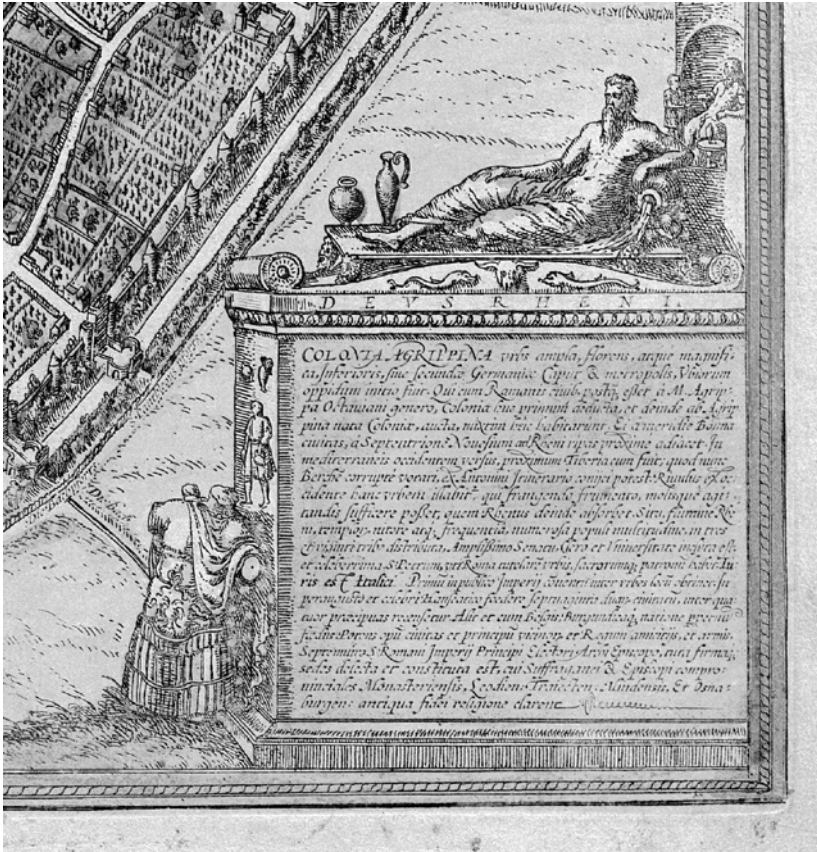 DEVS RHENI.
COLONIA AGRIPPINA vrbs ampla, florens, atque magnifi-
ca, Inferioris, siue secundæ Germaniæ Caput & metropolis, Vbiorum
oppidum initio fuit. Qui cum Romanis ciuib. postq esset a M. Agrip-
pa Octauiani genero, Colonia euo primum deducta, et deinde ab Agrip
pina nata Coloniæ, aucta, mixtim heic habitarunt. Ei a meridie Bonna
ciuitas, a Septentrione Nouesium ad Rheni ripas proxime adiacet. In
mediterraneis occidentem versus, proximum Tiberiacum fuit, quod nunc
Berchē corrupte vocari, ex Antonini Itinerario conijci potest. Riuulus ex oc-
cidente hanc vrbem illabit, qui frangendo frumento, molisque agi-
tandis sufficere posset, quem Rhenus deinde absorbet. Situ, flumine Rhe
n, temp. nitore atq. frequentia, numerosa populi multitudine, in tres
et viginti tribo distributa, Amplissimo Senatu, Clero et Vniuersitate
et celeberrima. S. Petrum, vet Roma tutelarē vrbis, sacrorumq. patronū habet. Iu
ris est Italici. Primū in publico Imperij conuentu inter vrbes locū obtinet. In
perangusto et celebri Hanseatico foedere septuaginta duarū ciuitatū, inter qua
tuor præcipuas recensetur. Aliis et cum Belgis, Burgundicaq. natione
foedus. Potens opū ciuitas et principū vicinorū et Regum amicitijs, et armis.
Septemuiro S. Romani Imperij Principi Electori Archi Episcopo, cura firmaq.
sedes delecta et constituta est, cui Suffraganei & Episcopi compro-
uinciales Monasteriensis, Leodien. Traiecten. Mindensis, Et Osna-
burgens: antiqua fidei religione clarent